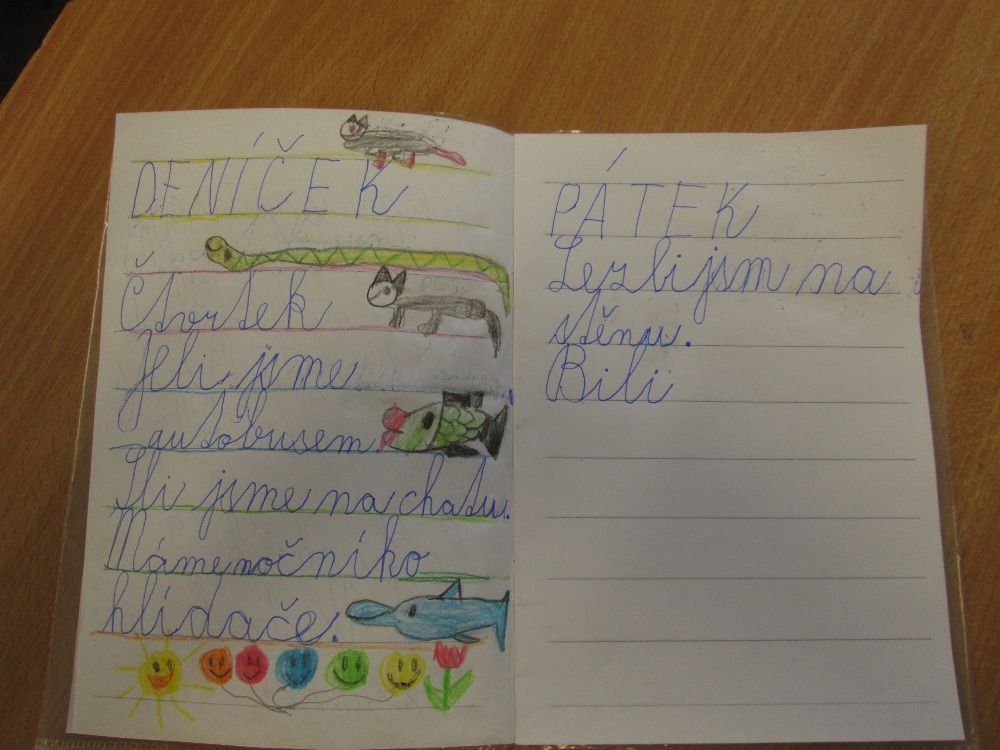 DENÍČEK
Čtvrtek
Jeli jsme
autobusem.
Šli jsme na chatu.
Máme nočniko
hlídače.
PÁTEK
Lezli jsm na
stěnu.
Bili